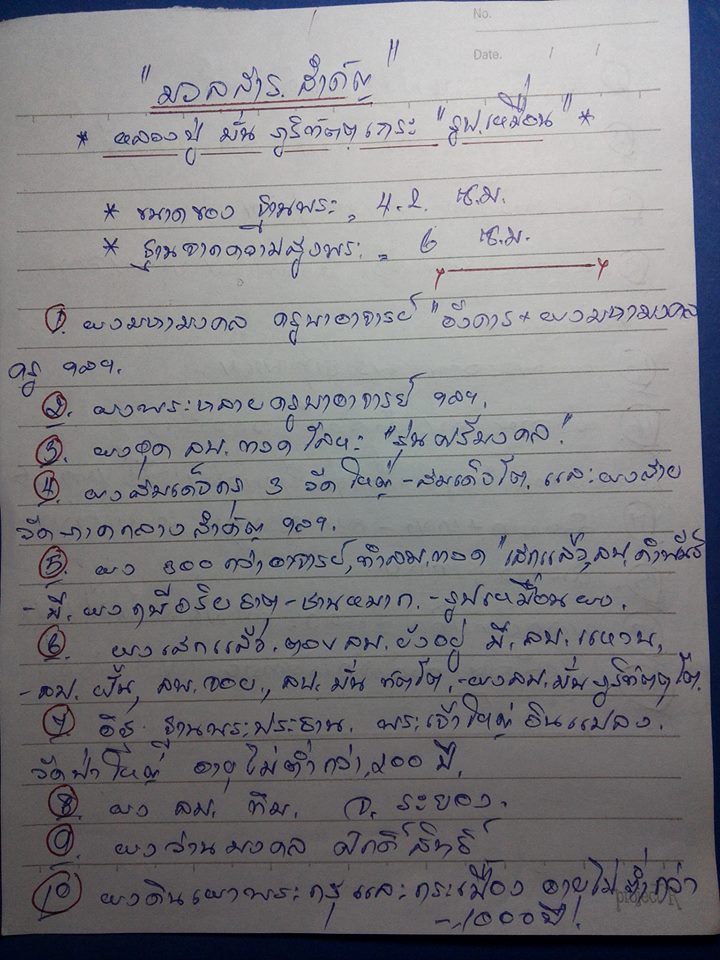 No.
Date. / /
"มวลสาร สำคัญ"
* หลวงปู่ มั่น ภูริทัตตเถระ "รูปเหมือน" *
* ขนาดของ ฐานพระ = 4.2. ซ.ม.
* ฐานจากความสูงพระ = 6 ซ.ม.
1. ผงมหามงคล ครูบาอาจารย์ "อังคาร + ผงมหามงคล
ครู ฯลฯ.
2. ผงพระหลายครูบาอาจารย์ ฯลฯ.
3. ผงชุด ลพ. ทวด "รุ่นศรีมงคล."
4. ผงสมเด็จกรุ 3 วัดใหญ่ - สมเด็จโต. และผงสาย
วัดภาคกลางสำคัญ ฯลฯ.
5. ผง ๑๐๐ กว่าอาจารย์, ทำ ลพ. ทวด "เสกแล้ว, ลป. คำพันธ์
- มี. ผงฤาษีอริยธาตุ - ชานหมาก. - รูปเหมือนผง.
6. ผงเสกแล้ว. ตอน ลป. ยังอยู่ มี. ลป. แหวน,
- ลป. ฝั้น, ลป. จอย., ลป. มั่น ทัตโต. - ผง ลป. มั่น ภูริทัตตโต.
7. อิฐ ฐานพระประธาน. พระเจ้าใหญ่อินแปลง.
วัดป่าใหญ่ อายุไม่ต่ำกว่า, ๒๐๐ ปี,
8. ผง ลป. ทิม. จ. ระยอง.
9. ผงว่านมงคล ศักดิ์สิทธิ์
10 ผงดินเผาพระกรุ และกระเบื้อง อายุไม่ต่ำกว่า
- 1000 ปี!